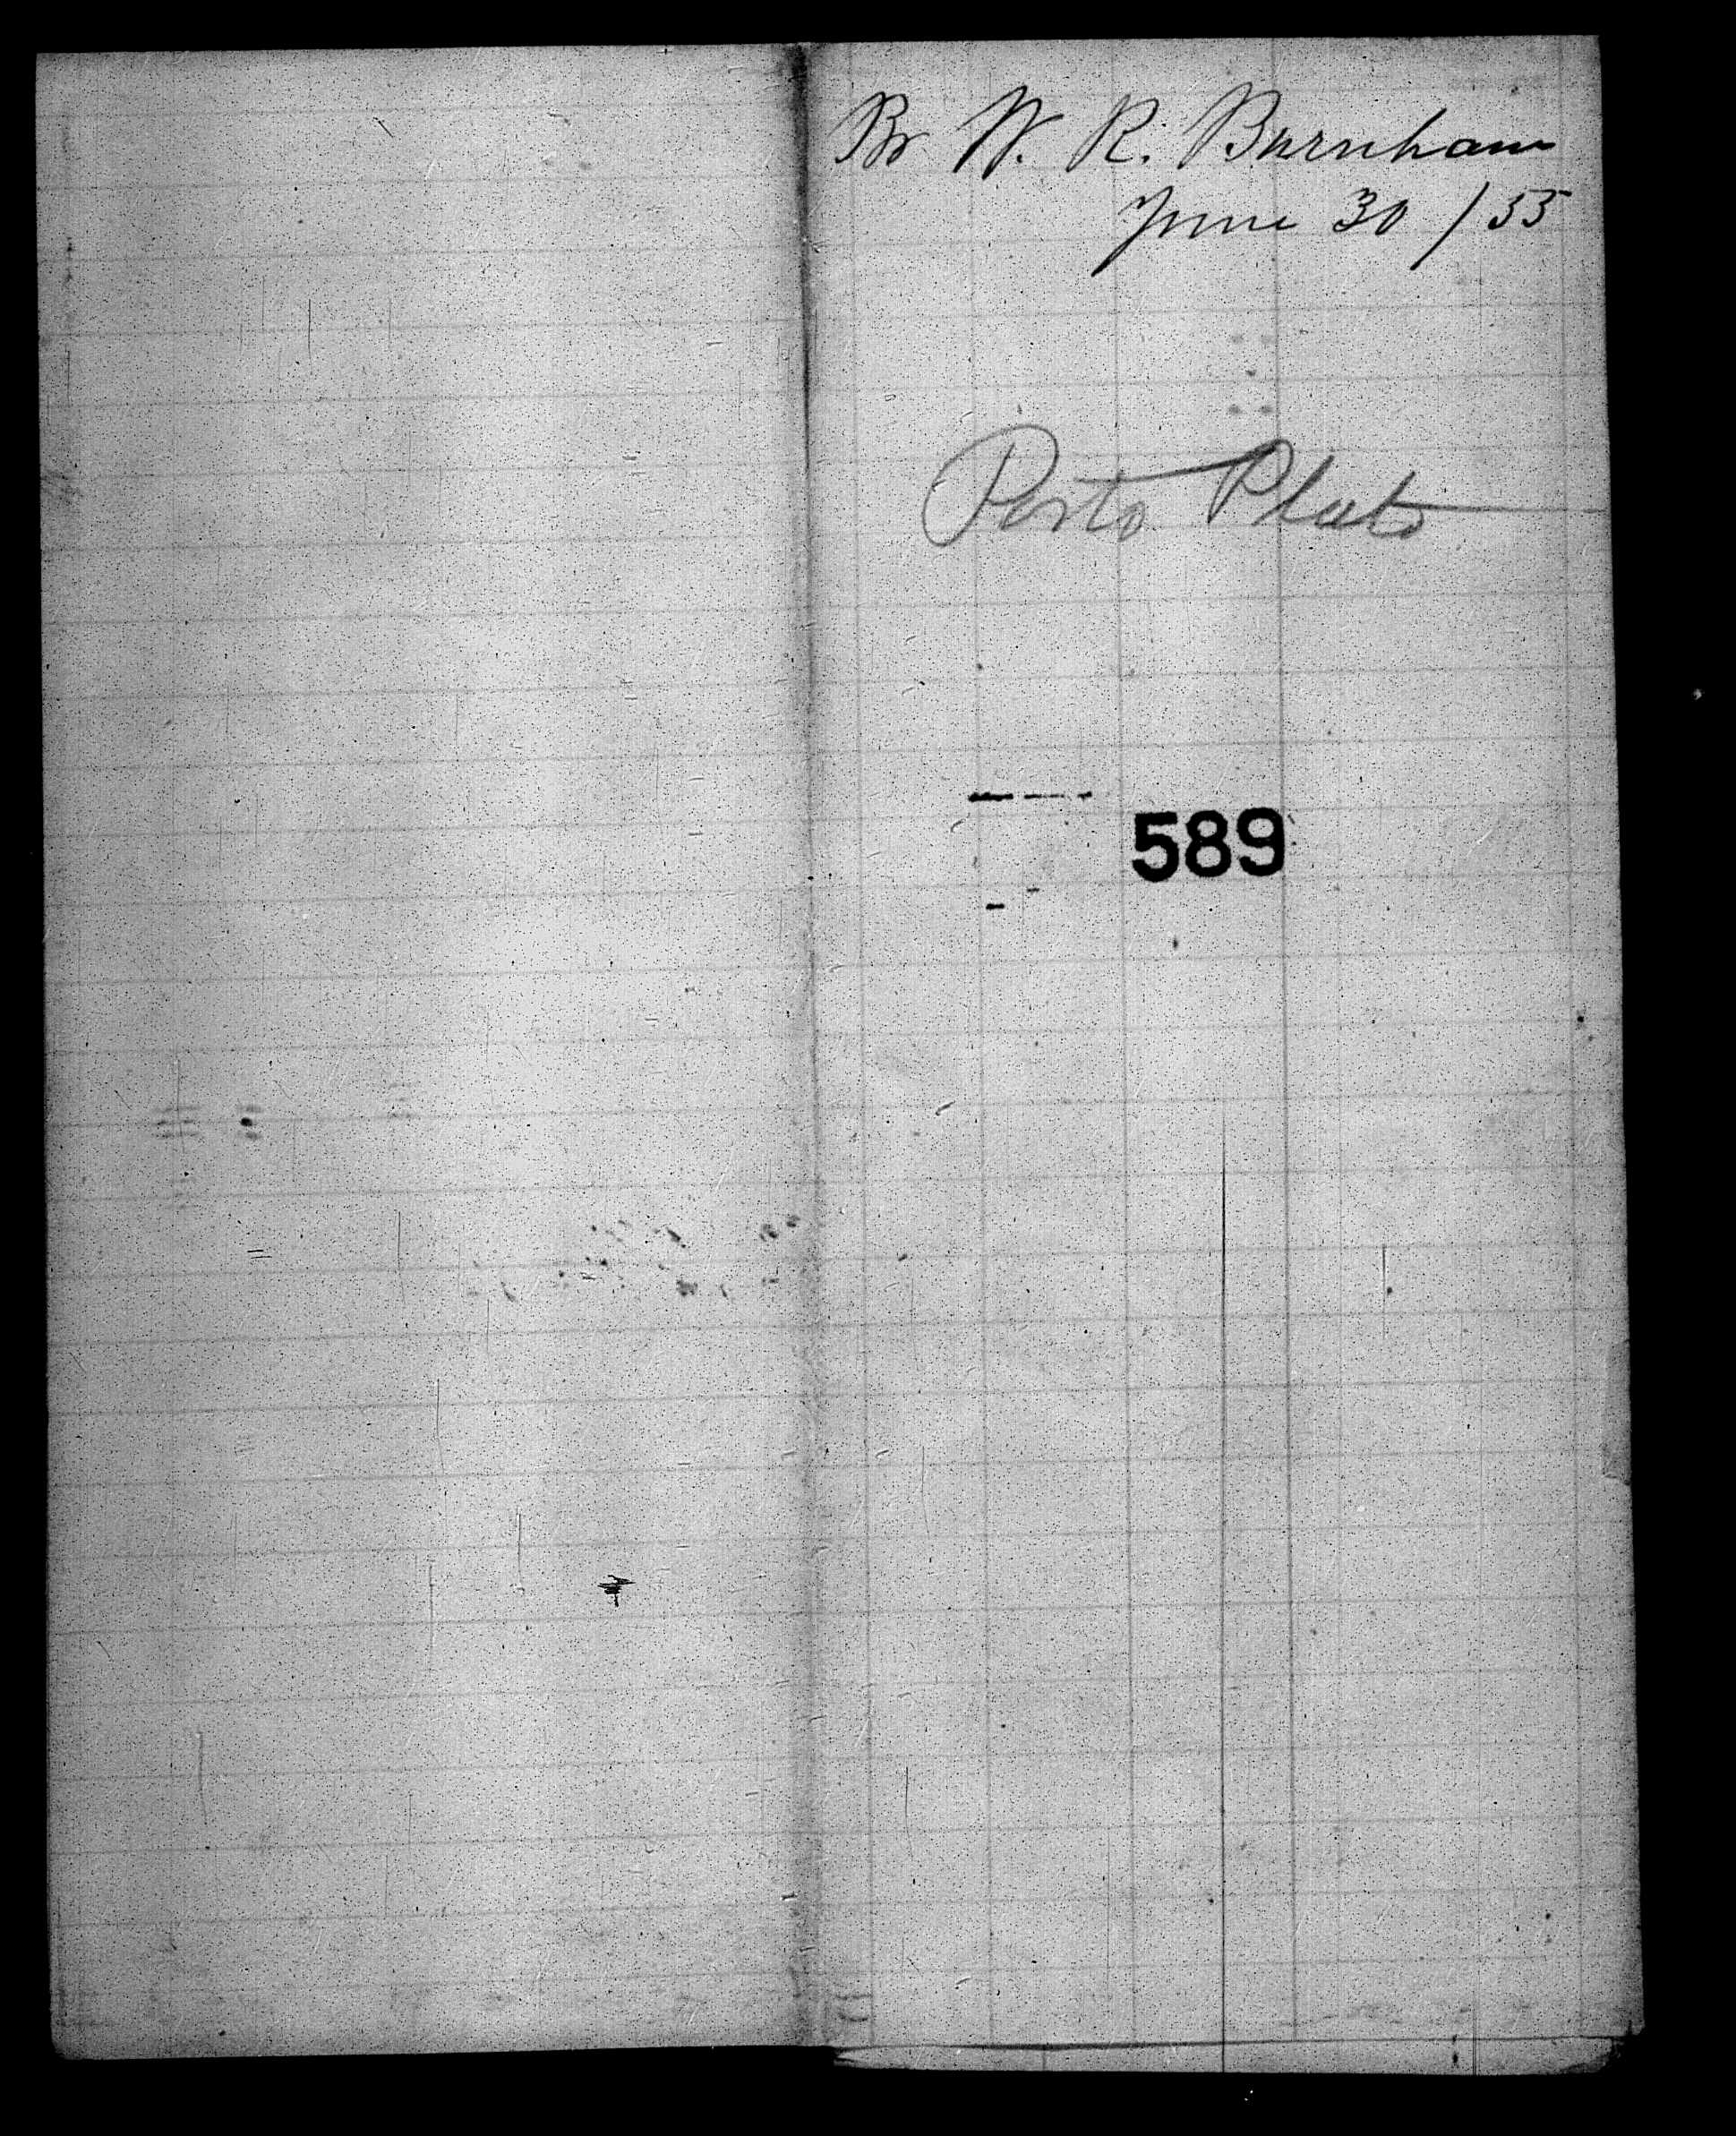 Br W. R. Burnham
June 30 / 55
Porto Plato
589